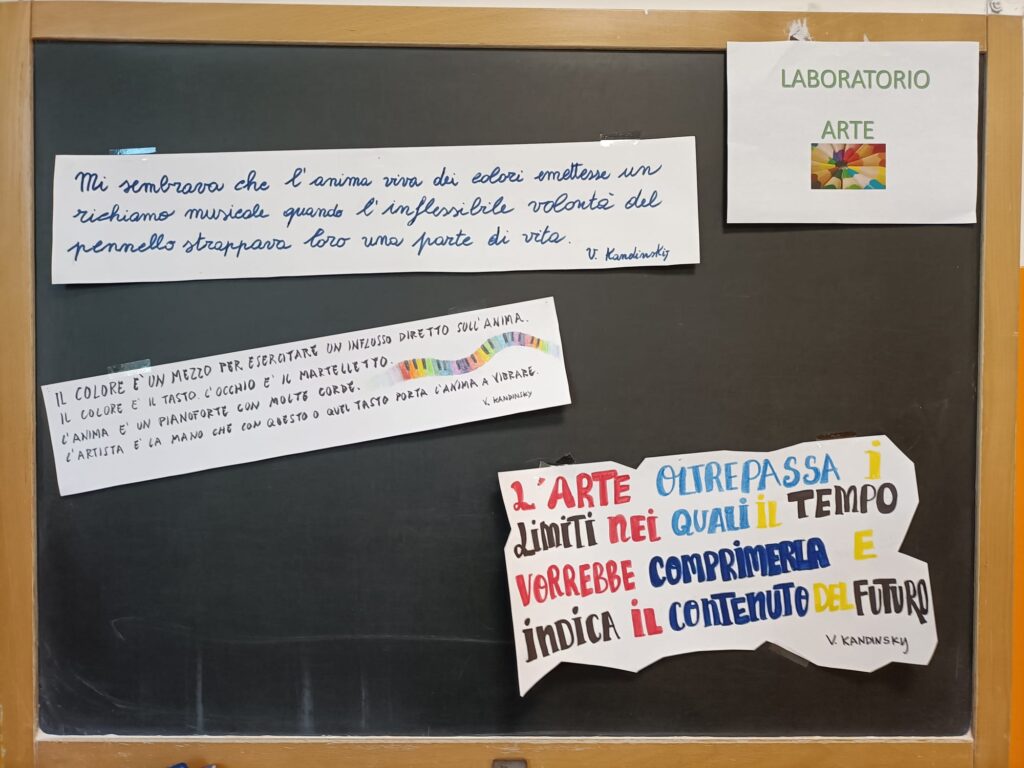 LABORATORIO
ARTE
Mi sembrava che l'anima viva dei colori emettesse un
richiamo musicale quando l'inflessibile volontà del
pennello strappava loro una parte di vita.
V. Kandinskij
IL COLORE E' UN MEZZO PER ESERCITARE UN INFLUSSO DIRETTO SULL'ANIMA.
IL COLORE E' IL TASTO. L'OCCHIO E' IL MARTELLETTO.
L'ANIMA E' UN PIANOFORTE CON MOLTE CORDE.
L'ARTISTA E' LA MANO CHE CON QUESTO O QUEL TASTO PORTA L'ANIMA A VIBRARE.
V. KANDINSKY
L'ARTE OLTREPASSA i
LIMITI NEI QUALI IL TEMPO
VORREBBE COMPRIMERLA E
INDICA IL CONTENUTO DEL FUTURO
V. KANDINSKY